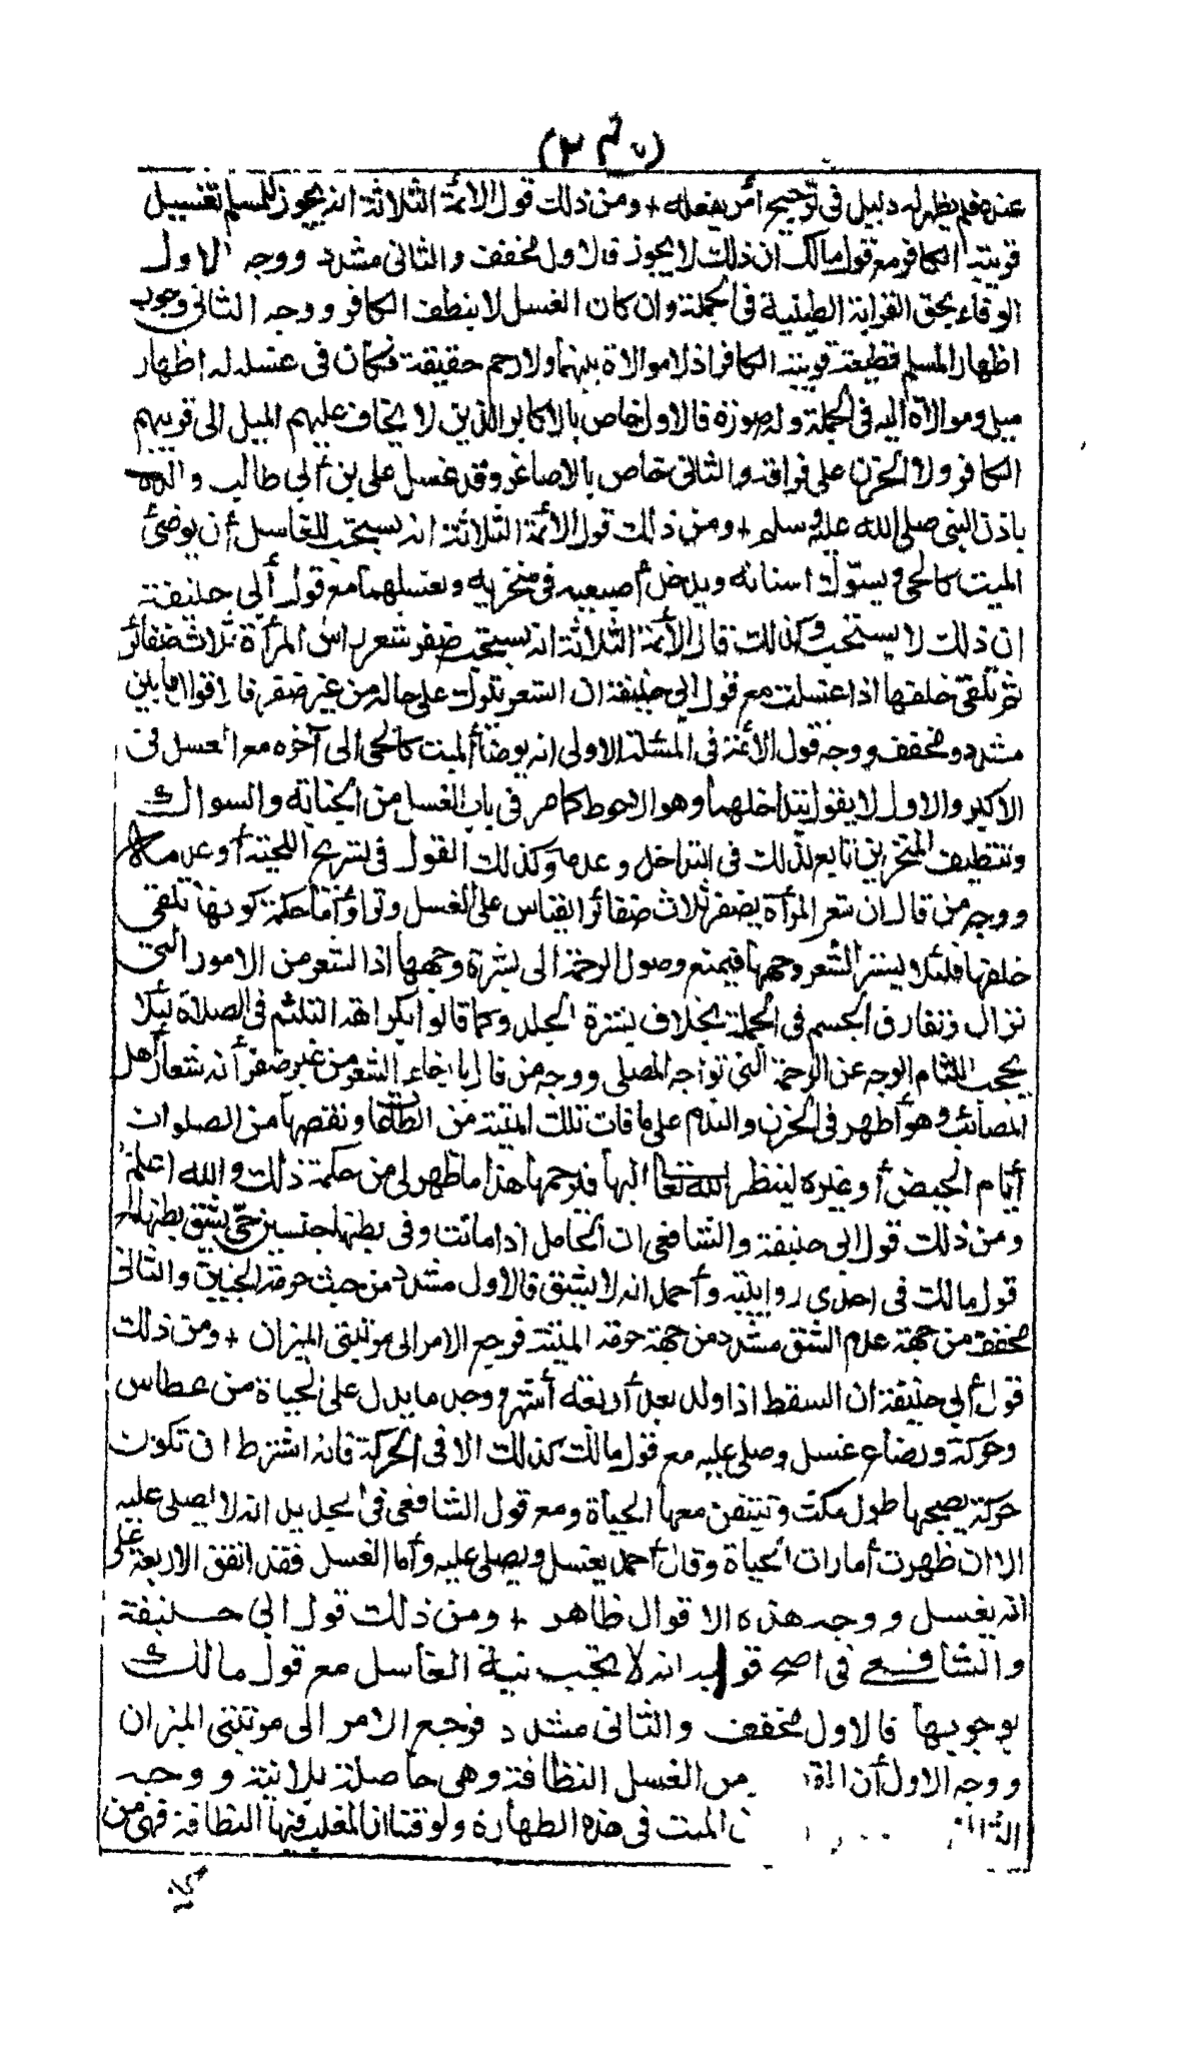 عنده فلم يظهر له دليل في ترجيح أمر يفعله + ومن ذلك قول الائمة الثلاثة انه يجوز للمسلم تغسيل
قريبه الكافر مع قول مالك ان ذلك لا يجوز فالاول مخفف والثاني مشدد ووجه الاول
الوفاء بحق القرابة الطينية في الجملة وان كان الغسل لا ينظف الكافر ووجه الثاني وجوب
اظهار المسلم قطيعة قريبه الكافر اذ لا موالاة بينهما ولا رحم حقيقة فكان في غسله له اظهار
ميل وموالاة اليه في الجملة ولو صورة فالاول خاص بالاكابر الذين لا يخاف عليهم الميل الى قريبهم
الكافر ولا الحزن على فراقه والثاني خاص بالاصاغر وقد غسل علي بن أبي طالب والده
باذن النبي صلى الله عليه وسلم + ومن ذلك قول الأئمة الثلاثة انه يستحب للغاسل أن يوضئ
الميت كالحي ويسوك اسنانه ويدخل أصبعيه في منخريه ويغسلهما مع قول أبي حنيفة
ان ذلك لا يستحب وكذلك قال الأئمة الثلاثة انه يستحب ضفر شعر رأس المرأة ثلاث ضفائر
ثم تلقى خلفها اذا غسلت مع قول ابي حنيفة ان الشعر يترك على حاله من غير ضفر فالاقوال ما بين
مشدد ومخفف ووجه قول الأئمة في المسئلة الاولى انه يوضأ الميت كالحي الى آخره مع الغسل فى
الاكبر والاول لا يقول بتداخلهما وهو الاحوط كما مر في باب الغسل من الجنابة والسواك
وتنظيف المنخرين تابع لذلك في التداخل وعدمه وكذلك القول في تسريح اللحية أو عدمه
ووجه من قال ان شعر المرأة يضفر ثلاث ضفائر القياس على الغسل وترا وأما حكمة كونها تلقى
خلفها فلئلا يستر الشعر وجهها فيمنع وصول الرحمة الى بشرة وجهها اذ الشعر من الامور التي
تزال وتفارق الجسم في الجملة بخلاف بشرة الجلد وكما قالوا بكراهة التلثم في الصلاة لئلا
يحجب اللثام الوجه عن الرحمة التي تواجه المصلي ووجه من قال بارخاء الشعر من غير ضفر أنه شعار أهل
المصائب وهو أظهر في الحزن والندم على ما فات تلك الميتة من الطاعات ونقصها من الصلوات
أيام الحيض أو غيره لينظر الله تعالى اليها فيرحمها هذا ما ظهر لي من حكمة ذلك والله اعلم +
ومن ذلك قول ابي حنيفة والشافعي ان الحامل اذا ماتت وفي بطنها جنين حي يشق بطنها مع
قول مالك في احدى روايتيه وأحمد انه لا يشق فالاول مشدد من حيث حرمة الجنين والثاني
مخفف من جهة عدم الشق مشدد من جهة حرمة الميتة فرجع الامر الى مرتبتي الميزان + ومن ذلك
قول أبي حنيفة ان السقط اذا ولد بعد أربعة أشهر ووجد ما يدل على الحياة من عطاس
وحركة ورضاع غسل وصلي عليه مع قول مالك كذلك الا في الحركة فانه اشترط ان تكون
حركة يصحبها طول مكث وتتيقن معها الحياة ومع قول الشافعي في الجديد انه لا يصلى عليه
الا ان ظهرت أمارات الحياة وقال أحمد يغسل ويصلى عليه وأما الغسل فقد اتفق الاربعة على
انه يغسل ووجه هذه الاقوال ظاهر + ومن ذلك قول ابي حنيفة
والشافعي في اصح قوليه انه لا تجب نية الغاسل مع قول مالك
بوجوبها فالاول مخفف والثاني مشدد فرجع الامر الى مرتبتي الميزان
ووجه الاول أن من الغسل النظافة وهي حاصلة بلا نية ووجه
الميت في هذه الطهارة ولو قلنا ان المغلب فيها النظافة فهي من